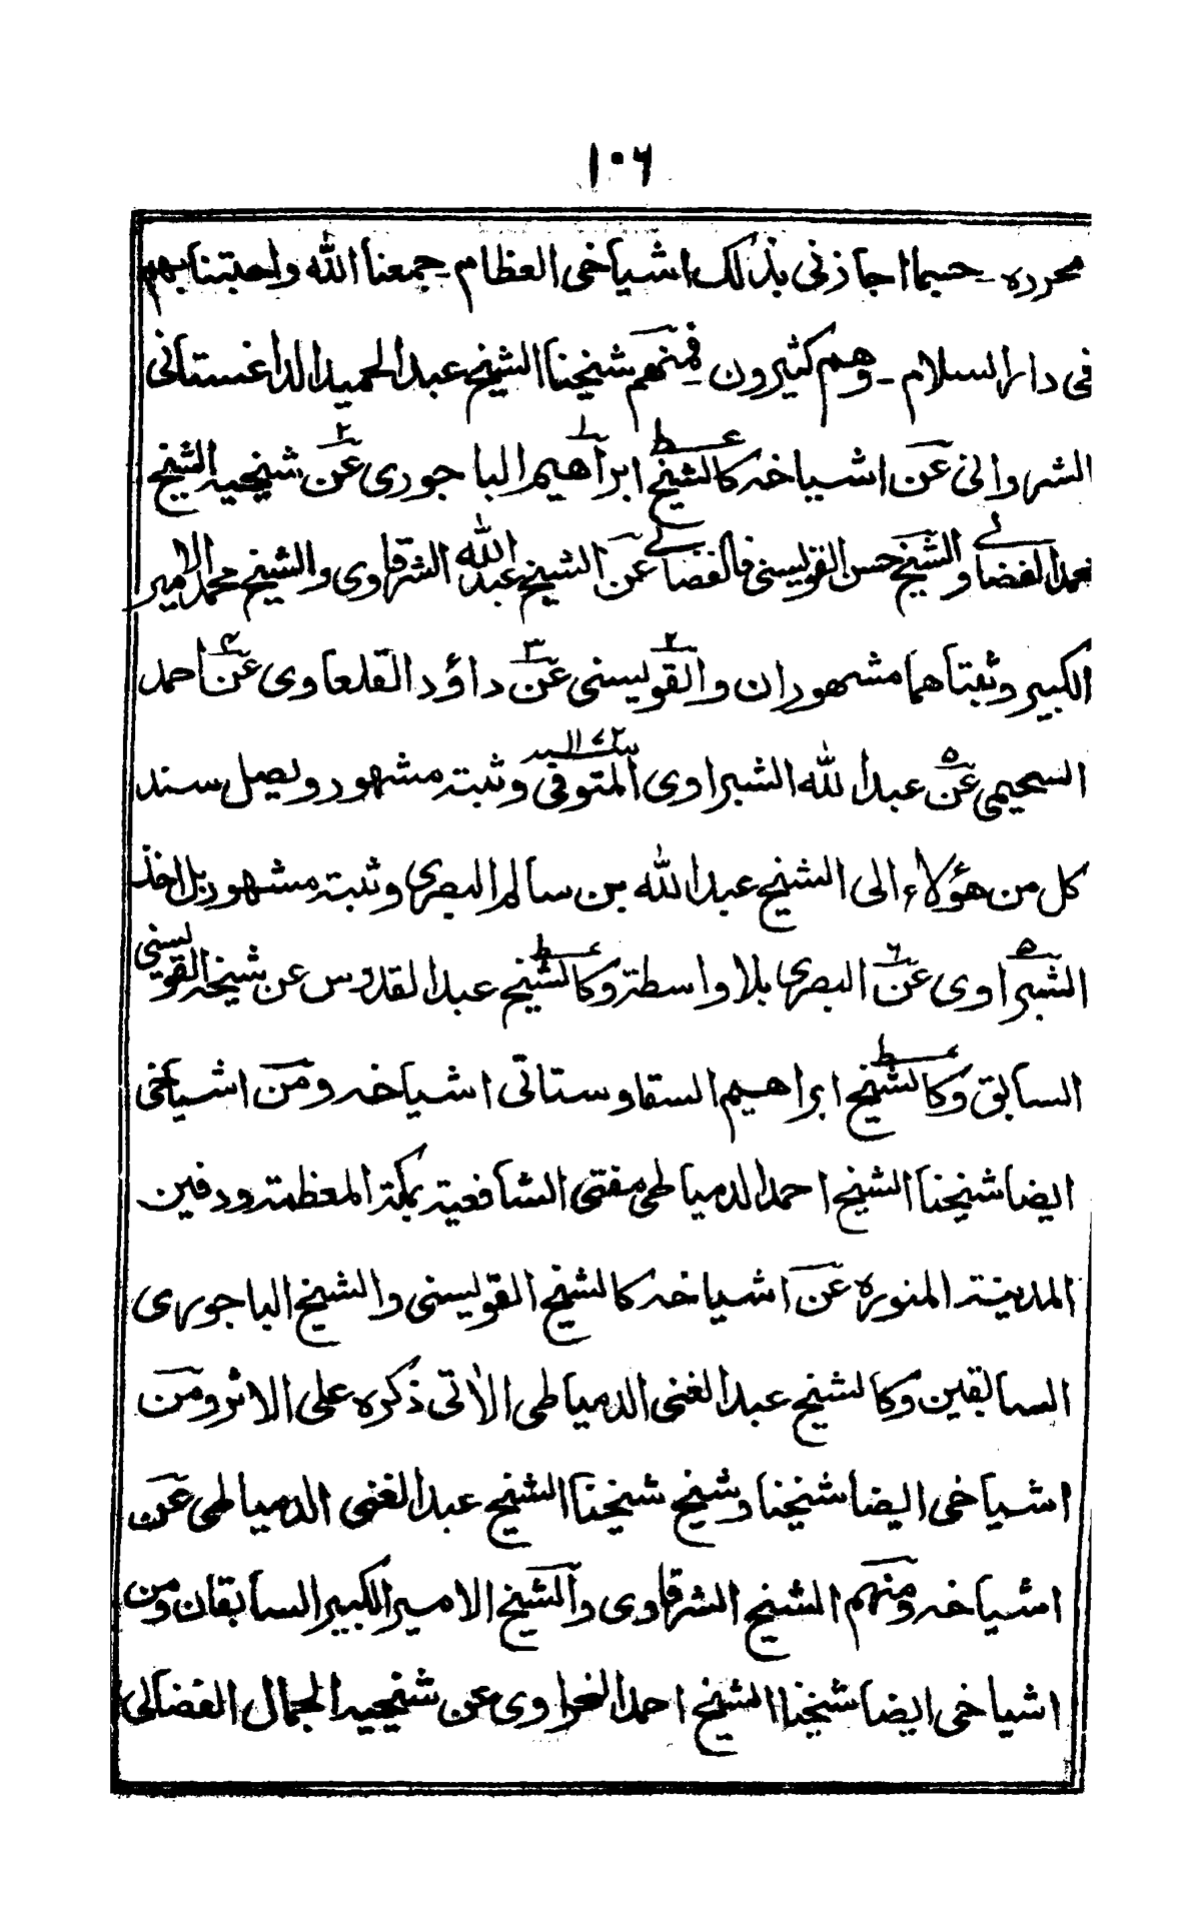 ١٠٦
محرره - حسبما اجازنى بذلك اشياخى العظام - جمعنا الله واحبتنا بهم
فى دار السلام - وهم كثيرون - فمنهم شيخنا الشيخ عبد الحميد الداغستانى
الشروانى عن اشياخه كالشيخ ابراهيم الباجورى عن شيخيه الشيخ
محمد الفضالى والشيخ حسن القويسنى فالفضالى عن الشيخ عبد الله الشرقاوى والشيخ محمد الامير
الكبير وثبتاهما مشهوران والقويسنى عن داؤد القلعاوى عن احمد
السحيمى عن عبد الله الشبراوى المتوفى وثبته مشهور ويصل سند
كل من هؤلاء الى الشيخ عبد الله بن سالم البصرى وثبته مشهور بل اخذ
الشبراوى عن البصرى بلا واسطة وكالشيخ عبد القدوس عن شيخه القويسنى
السابق وكالشيخ ابراهيم السقا وستاتى اشياخه ومن اشياخى
ايضا شيخنا الشيخ احمد الدمياطى مفتى الشافعية بمكة المعظمة ودفين
المدينة المنوره عن اشياخه كالشيخ القويسنى والشيخ الباجورى
السابقين وكالشيخ عبد الغنى الدمياطى الاٰتى ذكره على الاثر ومن
اشياخى ايضا شيخنا وشيخ شيخنا الشيخ عبد الغنى الدمياطى عن
اشياخه ومنهم الشيخ الشرقاوى والشيخ الامير الكبير السابقان ومن
اشياخى ايضا شيخنا الشيخ احمد النحراوى عن شيخيه الجمال الفضالى